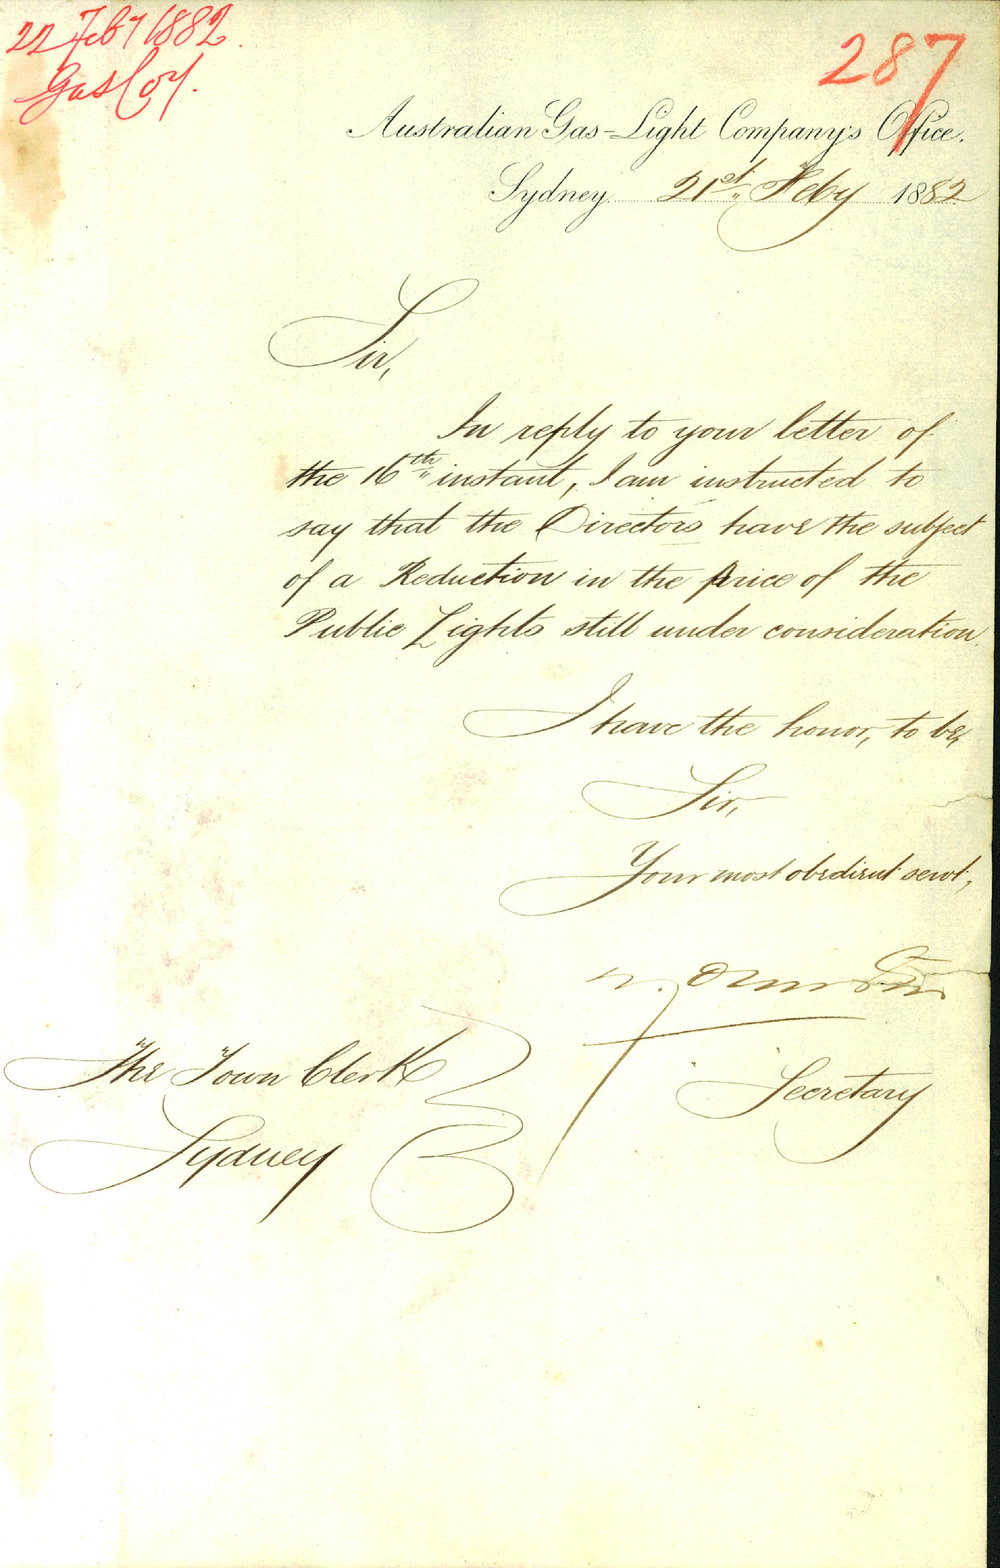 22 Feby 1882.
Gas Coy.
287
Australian Gas-Light Company's Office.
Sydney 21st Feby 1882
Sir,
In reply to your letter of
the 16th instant, I am instructed to
say that the Directors have the subject
of a Reduction in the price of the
Public Lights still under consideration.
I have the honor, to be,
Sir,
Your most obedient servt,
Secretary
The Town Clerk
Sydney